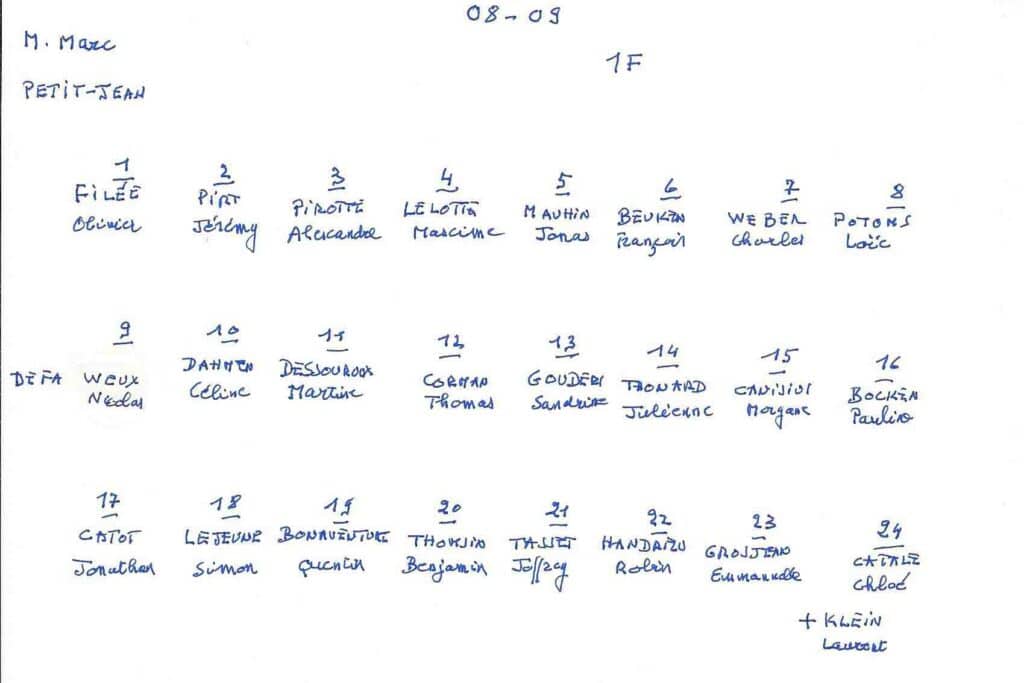 08-09
M. Marc
1F
PETIT-JEAN
1 2 3 4 5 6 7 8
FILÉE PIRT PIROTTE LELOTTE MAUHIN BEUKEN WEBER POTOMS
Olivier Jérémy Alexandre Maxime Jonas François Charles Loïc
9 10 11 12 13 14 15 16
DEFAWEUX DAHMEN DESSOUROUX CORMAN GOUDERS THONARD BOCKEN
Nicolas Céline Martine Thomas Sandrine Julienne Morgane Pauline
17 18 19 20 21 22 23 24
CATOT LEJEUNE BONAVENTURE THOMSIN TASSET GROSJEAN
Jonathan Simon Quentin Benjamin Joffrey Robin Emmanuelle Chloé
+ KLEIN
Laurent